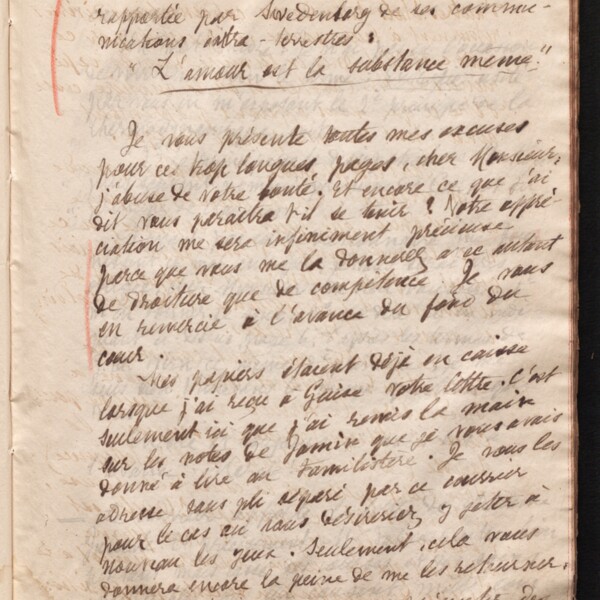 rapportée par Swedenborg de ses commu-
nications extra-terrestres :
"L'amour est la substance même."
Je vous présente toutes mes excuses
pour ces trop longues pages, cher Monsieur,
j'abuse de votre bonté. Et encore ce que j'ai
dit vous paraîtra t-il se tenir ? Votre appré-
ciation me sera infiniment précieuse
parce que vous me la donnerez avec autant
de droiture que de compétence. Je vous
en remercie à l'avance du fond du
cœur.
Mes papiers étaient déjà en caisse
lorsque j'ai reçu à Guise votre lettre. C'est
seulement ici que j'ai remis la main
sur les notes de Jamin que je vous avais
donné à lire au Familistère. Je vous les
adresse sous pli séparé par ce courrier
pour le cas où vous désireriez y jeter à
nouveau les yeux. Seulement, cela vous
donnera encore la peine de me les retourner.